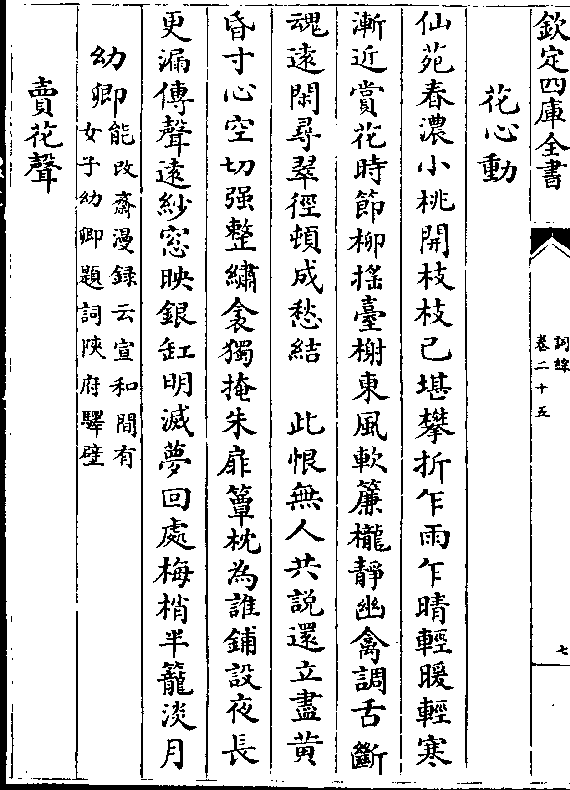 欽定四庫全書
詞綜
卷二十五
七
花心動
仙苑春濃小桃開枝枝已堪攀折乍雨乍晴輕暖輕寒
漸近賞花時節柳揺臺榭東風軟簾櫳靜幽禽調舌斷
魂逺閑尋翠徑頓成愁結　此恨無人共説還立盡黄
昏寸心空切强整繡衾獨掩朱扉簟枕為誰鋪設夜長
更漏傳聲逺紗窓映銀缸明滅夢回處梅梢半籠淡月
幼卿
能改齋漫録云宣和間有
女子幼卿題詞陜府驛壁
賣花聲